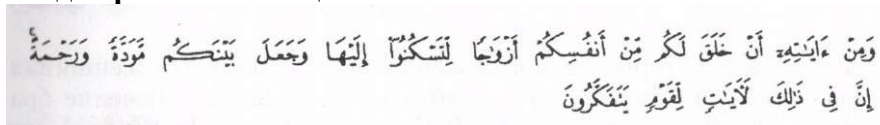 وَمِنْ ءَايَٰتِهِۦٓ أَنْ خَلَقَ لَكُم مِّنْ أَنفُسِكُمْ أَزْوَٰجًا لِّتَسْكُنُوٓا۟ إِلَيْهَا وَجَعَلَ بَيْنَكُم مَّوَدَّةً وَرَحْمَةً ۚ
إِنَّ فِى ذَٰلِكَ لَءَايَٰتٍ لِّقَوْمٍ يَتَفَكَّرُونَ